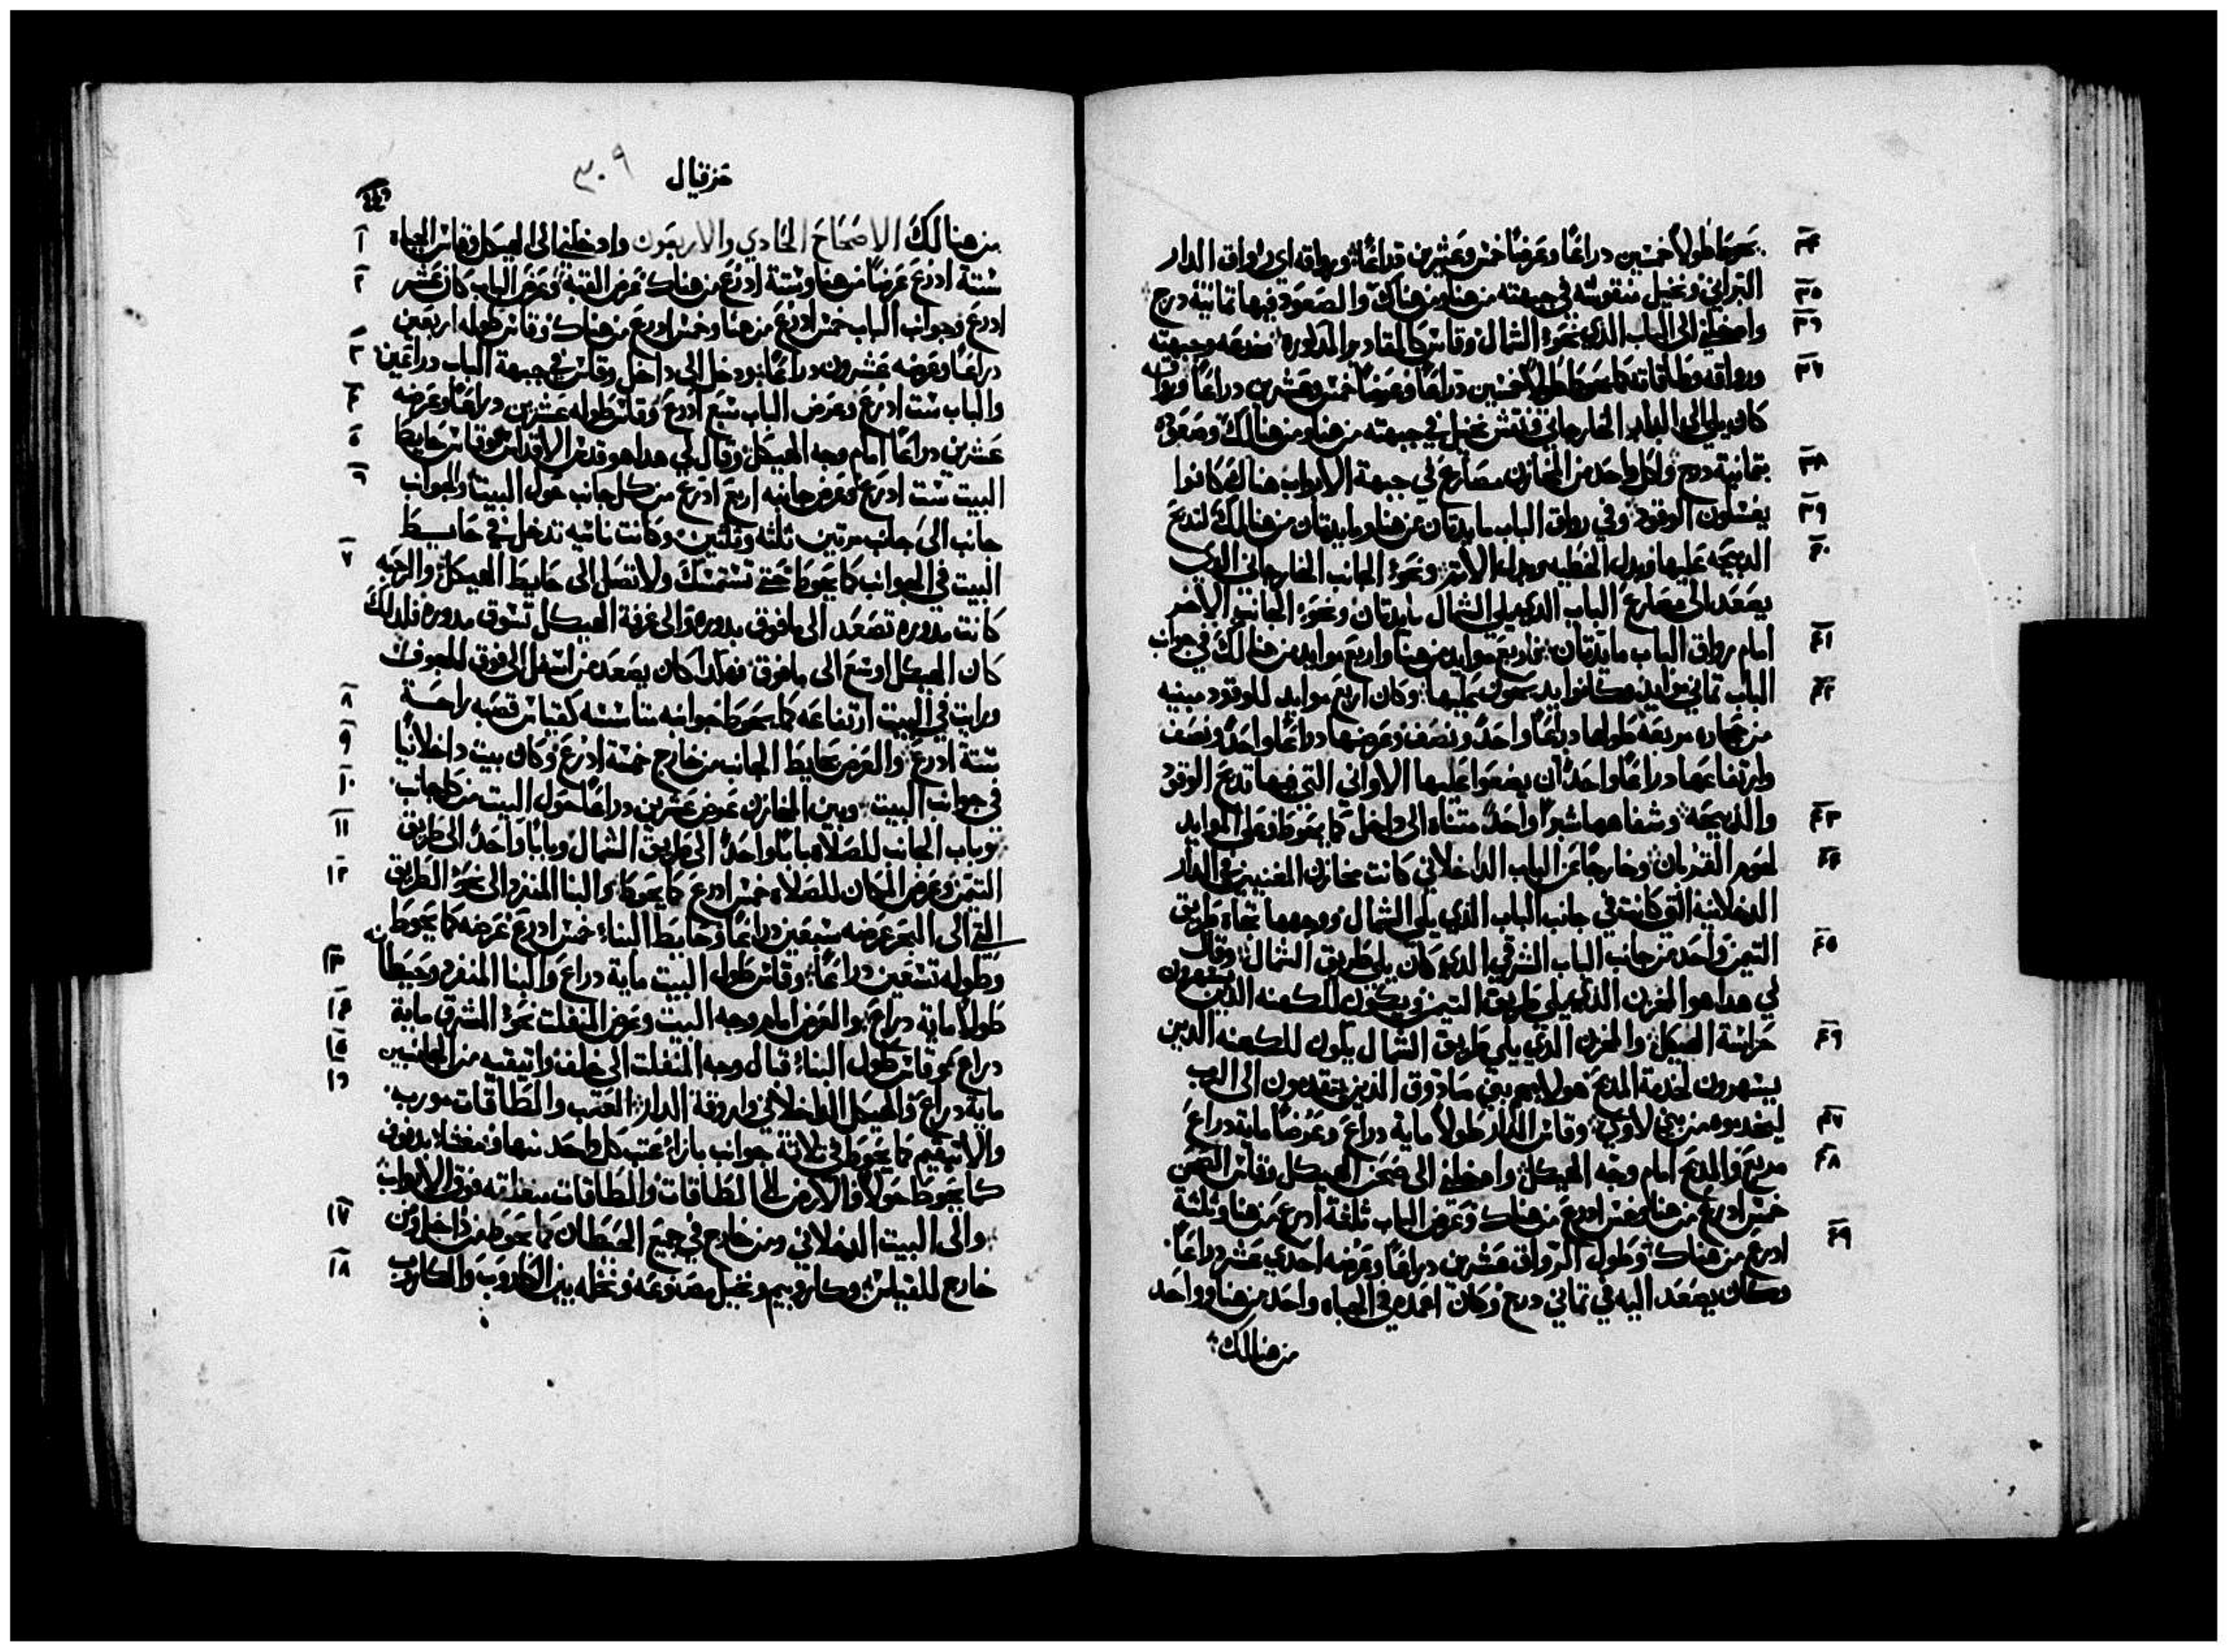 ٣٤
يحوط طولاً خمسين دراعًا وعرضًا خمس وعشرين دراعًا ورواقه اي رواق الدار
٣٥
البراني ونخيل منقوشه في جبهته من هنا ومن هناك والصعود فيها تمانية درج
٣٦
وادخلني الى الباب الذي نحو الشمال وقاس كالمقادير المذكوره مخدعه وجبهته
٣٧
ورواقه وطاقاته كما يحوط طولاً خمسين دراعًا وعرضًا خمس وعشرين دراعًا ورواقه
كان يلي الى الدار الخارجاني ونقش نخيل في جبهته من هنا ومن هنالك وصعوده
٣٨
بتمانية درج ولكل واحد من المخازن مصارع في جبهة الابواب هناك كانوا
٣٩
يغسلون الوقود وفي رواق الباب مايدتان من هنا ومايدتان من هنالك لتدبح
٤٠
الدبيحه عليها وبدل الخطيه وبدل الاتم ونحو الجانب الخارجاني الذي
يصعد الى مصارع الباب الذي يلي الشمال مايدتان ونحو الجانب الاخر
٤١
امام رواق الباب مايدتان اربع موايد من هنا واربع موايد من هنالك في جوانب
٤٢
الباب تماني موايد وكانوا يدبحون عليها وكان اربع موايد للوقود مبنيه
من حجاره مربعه طولها دراعًا واحدًا ونصف وعرضها دراعًا واحدًا ونصف
وارتفاعها دراعًا واحدًا ان يضعوا عليها الاواني التي فيها تدبح الوقود
٤٣
والذبيحه وشفاهها شبرًا واحدًا متناه الى داخل كما يحوط وعلى الموايد
٤٤
لحوم القربان وخارجًا عن الباب الداخلاني كانت مخازن المغنيين في الدار
الدخلانيه التي كانت في جانب الباب الذي يلي الشمال ووجهها تجاه طريق
٤٥
التيمن واحد من جانب الباب الشرقي الدي كان يلي طريق الشمال وقال
لي هدا هو المخزن الذي يلي طريق التيمن ويكون للكهنه الذين يسهرون
٤٦
حراسة الهيكل والمخزن الذي يلي طريق الشمال يكون للكهنه الدين
يسهرون لخدمة المدبح هولا هم بني صادوق الذين يتقدمون الى الرب
٤٧
ليخدموه من بني لاوي وقاس الدار طولاً ماية دراع وعرضًا ماية دراع
٤٨
مربع والمدبح امام وجه الهيكل وادخلني الى صحن الهيكل وقاس الصحن
خمس ادرع من هنا وخمس ادرع من هناك وعرض الباب ثلثة ادرع من هنا وثلثة
٤٩
ادرع من هناك وطول الرواق عشرين دراعًا وعرضه احدي عشر دراعًا
وكان يصعد اليه في تماني درج وكان اعمده في الجباه واحد من هنا وواحد
من هنالك
حزقيال
٣٠٩
من هنالك الاصحاح الحادي والاربعون وادخلني الى الهيكل وقاس الجباه
١
ستة ادرع عرضًا من هنا وستة ادرع من هناك عرض القبة وعرض الباب كان عشر
٢
ادرع وجوانب الباب خمس ادرع من هنا وخمس ادرع من هناك وقاس طوله اربعين
دراعًا وعرضه عشرون دراعًا ودخل الى داخل وقاس في جبهة الباب دراعين
٣
والباب ست ادرع وعرض الباب سبع ادرع وقاس طوله عشرين دراعًا وعرضه
٤
عشرين دراعًا امام وجه الهيكل وقال لي هدا هو قدس الاقداس وقاس حايط
٥
البيت ست ادرع وعرض جانبه اربع ادرع من كل جانب حول البيت والجوانب
٦
جانب الى جانب مرتين ثلثه وثلثين وكانت ناتيه تدخل في حايط
البيت في الجوانب كما يحوط حتي تستمسك ولا تصل الى حايط الهيكل والرحبه
٧
كانت مدوره تصعد الى ما فوق بدوره والى غرفة الهيكل تسوق مدوره فلدلك
كان الهيكل اوسع الى ما فوق فهكدا كان يصعد من اسفل الى فوق للجوف
ورايت في البيت ارتفاعه كما يحوط جوانبه متاسسه كقياس قصبه براحة
٨
ستة ادرع والعرض بحايط الجانب من خارج خمسة ادرع وكان بيت داخلانيًا
٩
في جوانب البيت وبين المخازن عرض عشرين دراعًا حول البيت من كل جانب
١٠
وباب الجانب للصلاه بابًا واحدًا الى طريق الشمال وبابًا واحدًا الى طريق
١١
التيمن وعرض المكان للصلاه خمس ادرع كما يحوط والبنا المنفرد الى نحو الطريق
١٢
التي الى البحر عرضه سبعين دراعًا وحايط البناء خمس ادرع عرضه كما يحوط
وطوله تسعين دراعًا وقاس طول البيت ماية دراع والبنا المنفرد وحيطانه
١٣
طولاً ماية دراع والعرض امام وجه البيت وعرض المنفلت نحو المشرق ماية
١٤
دراع وقاس طول البناء قبال وجه المنفلت الى خلف واتيقيه من الجانبين
١٥
ماية دراع والهيكل الداخلاني واروقة الدار العتب والطاقات موربه
١٦
والاتيقيم كما يحوط في تلاتة جوانب بازاء عتب كل واحد منها ومغشا بدفوف
كما يحوط حولاً والارض الى الطاقات والطاقات مغلقه فوق الابواب
والى البيت الدخلاني ومن خارج في جميع الحيطان كما يحوط من داخل ومن
١٧
خارج للقياس وكاروبيم ونخيل مصنوعه ونخله بين الكاروب والكاروب
١٨